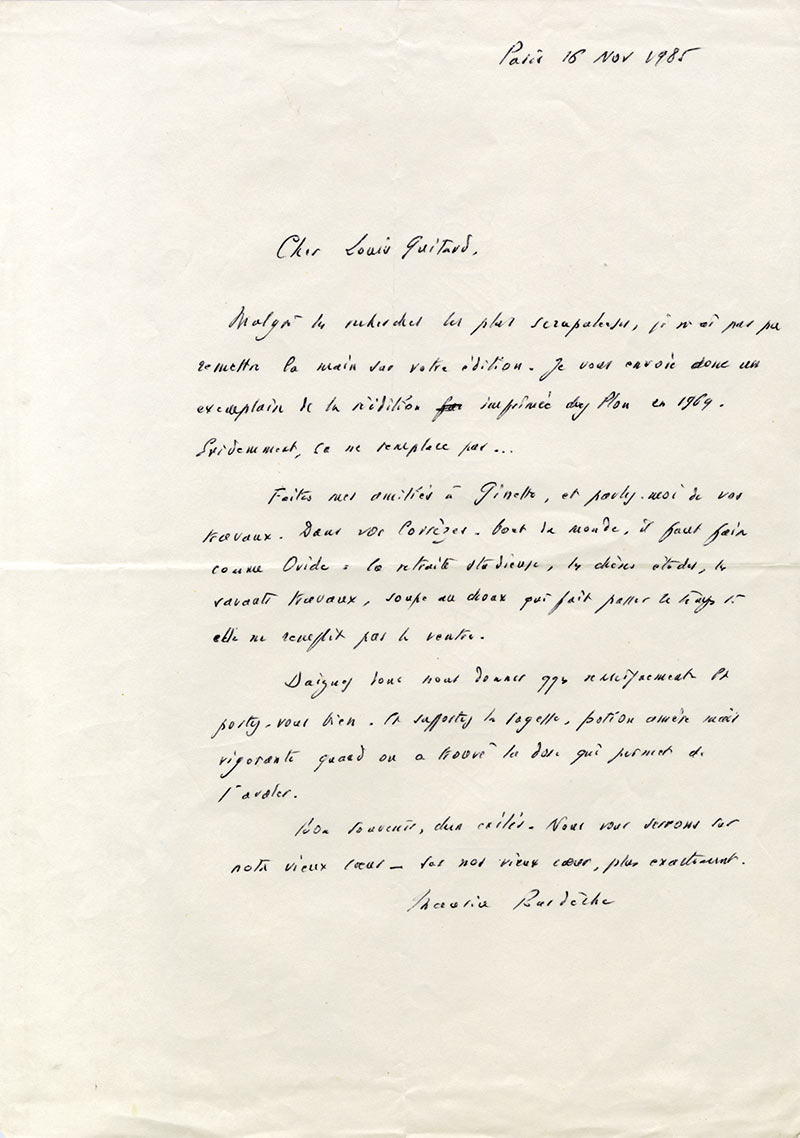 Paris 16 Nov 1985
Cher Louis Guitard,
Malgré les recherches les plus scrupuleuses, je n'ai pas pu
remettre la main sur votre édition. Je vous envoie donc un
exemplaire de la réédition imprimée chez Plon en 1969.
Evidemment, ça ne remplace pas...
Faites mes amitiés à Ginette, et parlez-moi de vos
travaux. Dans vos Corrèzes-bout du monde, il faut faire
comme Ovide : la retraite studieuse, les chères études, les
savants travaux, soupe au choux qui fait passer le temps si
elle ne remplit pas le ventre.
Daignez donc nous donner qqs renseignements et
portez-vous bien. Et supportez la sagesse, potion amère mais
vigorante quand on a trouvé la dose qui permet de
l'avaler.
Bon souvenir, chers exilés. Nous vous serrons sur
notre vieux cœur _ sur nos vieux cœurs, plus exactement.
Maurice Bardèche